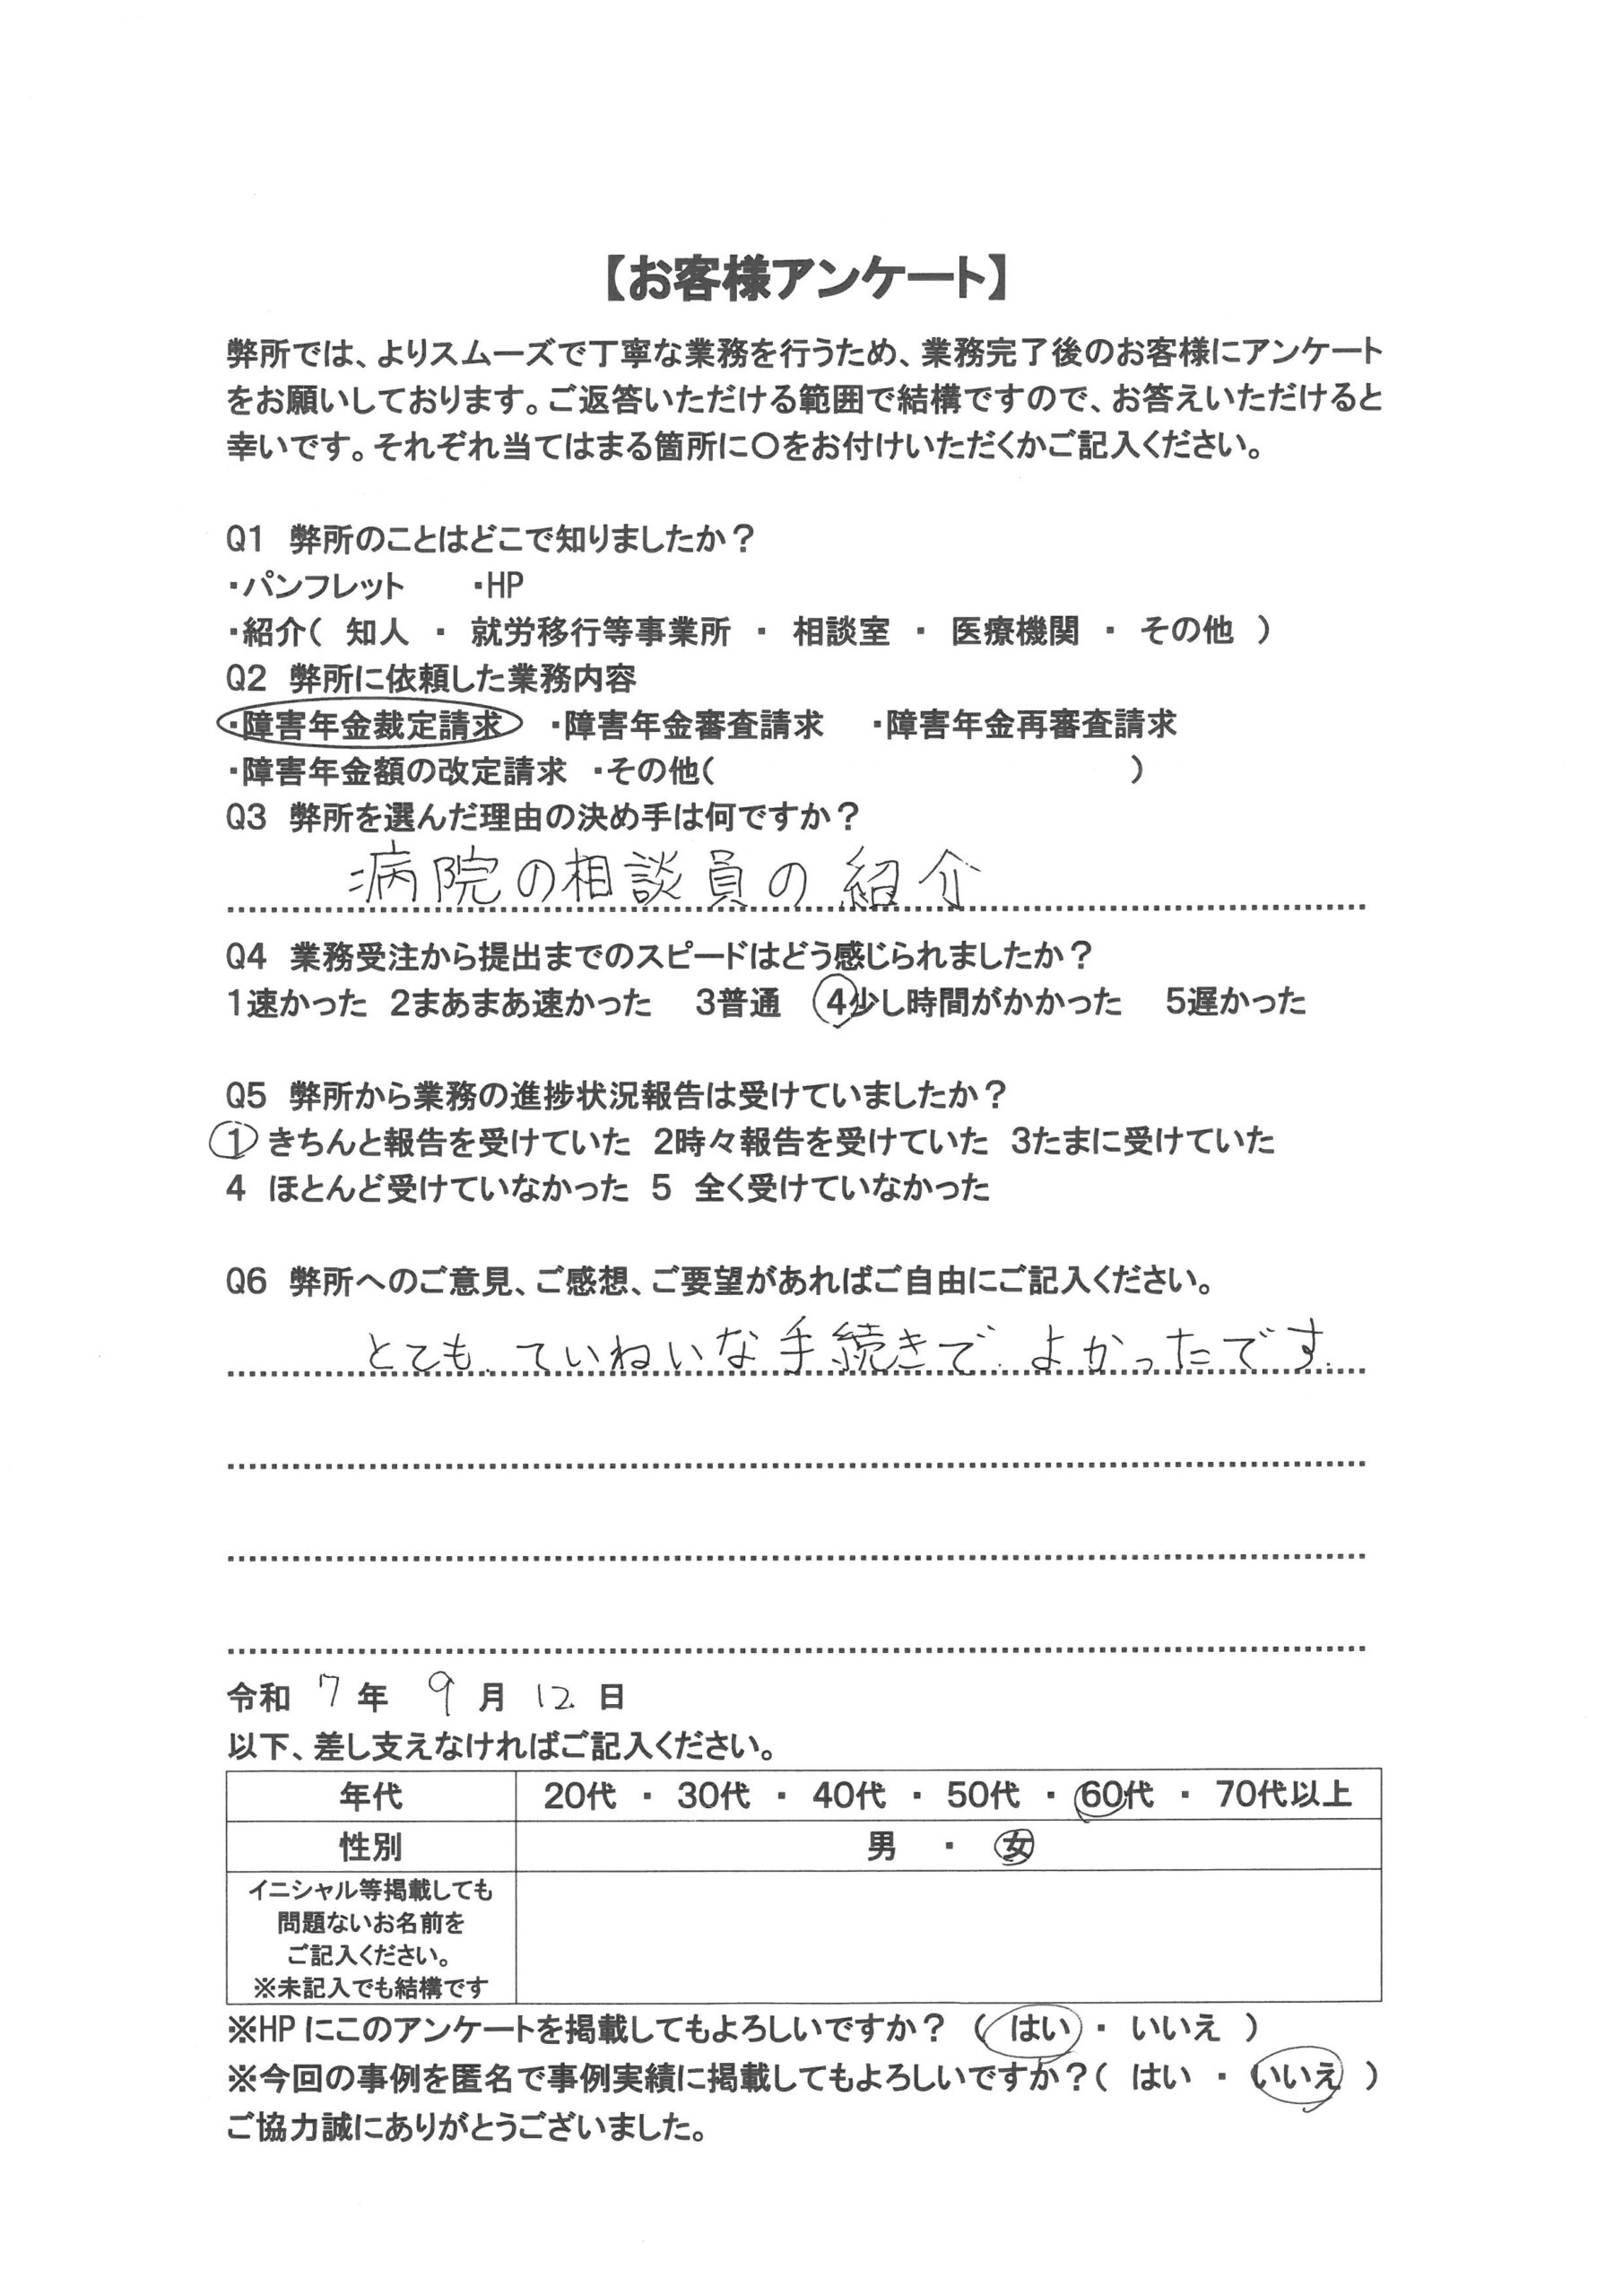 【お客様アンケート】
弊所では、よりスムーズで丁寧な業務を行うため、業務完了後のお客様にアンケート
をお願いしております。ご返答いただける範囲で結構ですので、お答えいただけると
幸いです。それぞれ当てはまる箇所に〇をお付けいただくかご記入ください。
Q1 弊所のことはどこで知りましたか？
・パンフレット ・HP
・紹介（ 知人 ・ 就労移行等事業所 ・ 相談室 ・ 医療機関 ・ その他 ）
Q2 弊所に依頼した業務内容
・障害年金裁定請求 ・障害年金審査請求 ・障害年金再審査請求
・障害年金額の改定請求 ・その他（ ）
Q3 弊所を選んだ理由の決め手は何ですか？
病院の相談員の紹介
Q4 業務受注から提出までのスピードはどう感じられましたか？
1速かった 2まあまあ速かった 3普通 4少し時間がかかった 5遅かった
Q5 弊所から業務の進捗状況報告は受けていましたか？
1 きちんと報告を受けていた 2時々報告を受けていた 3たまに受けていた
4 ほとんど受けていなかった 5 全く受けていなかった
Q6 弊所へのご意見、ご感想、ご要望があればご自由にご記入ください。
とても、ていねいな手続きで、よかったです。
令和 7 年 9 月 12 日
以下、差し支えなければご記入ください。
年代 20代 ・ 30代 ・ 40代 ・ 50代 ・ 60代 ・ 70代以上
性別 男 ・ 女
イニシャル等掲載しても
問題ないお名前を
ご記入ください。
※未記入でも結構です
※HPにこのアンケートを掲載してもよろしいですか？（ はい ・ いいえ ）
※今回の事例を匿名で事例実績に掲載してもよろしいですか？（ はい ・ いいえ ）
ご協力誠にありがとうございました。